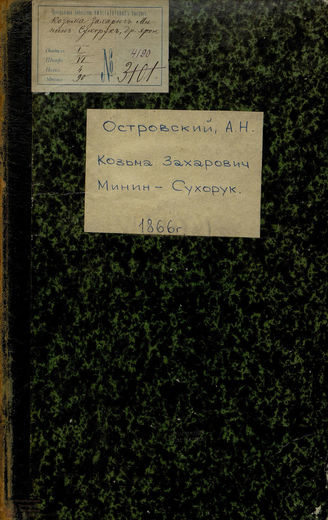 Козьма Захарыч Ми-
нин Сухорук, др. хрон.
4190
Отдѣлъ I
Шкафъ VI
Полка 4
Мѣсто 90
№ 3101.
Островский, А.Н.
Козьма Захарович
Минин - Сухорук.
1866г